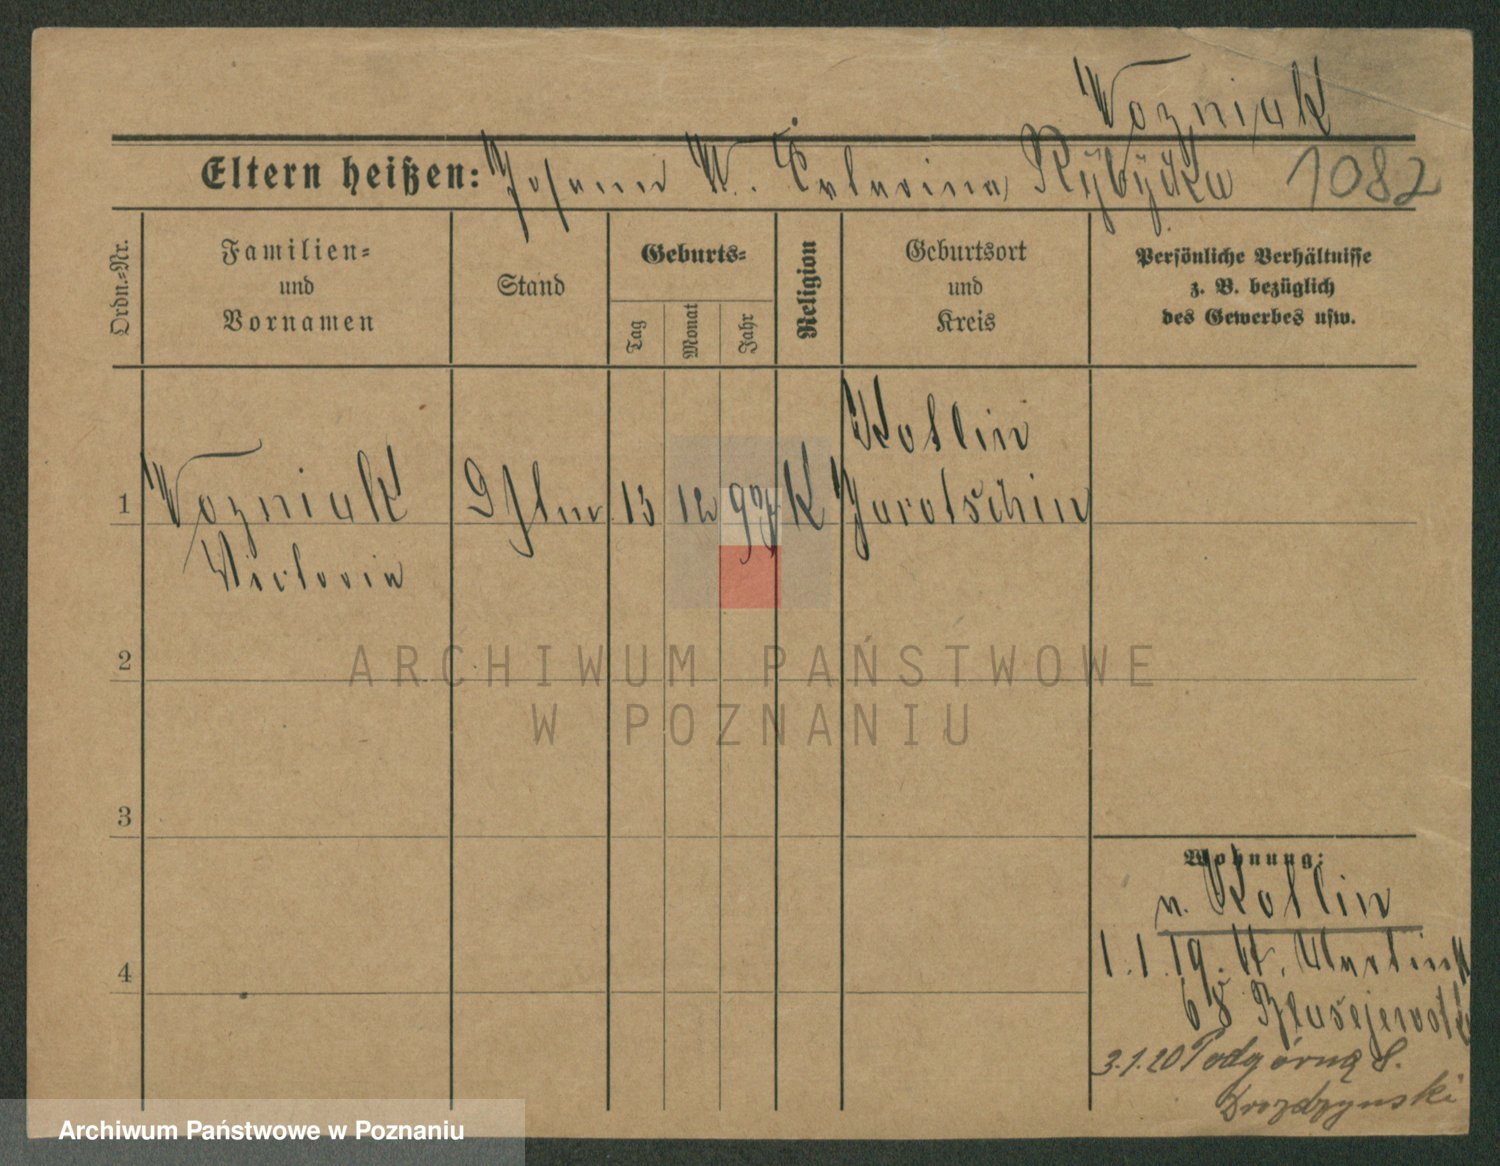 Wozniak
Eltern heißen: Johann W. Catarina Rybycka 1082
Ordn.-Nr.
Familien-
und
Vornamen
Stand
Geburts-
Tag
Monat
Jahr
Religion
Geburtsort
und
Kreis
Persönliche Verhältnisse
z. B. bezüglich
des Gewerbes usw.
Kollin
1 Wozniak 13 12 K Jarotschin
Victoria
2
ARCHIWUM PAŃSTWOWE
W POZNANIU
3
Wohnung:
v. Kollin
4
1.1.19. St. Martinst
68
3.1.20 Podgórna 8.
Drozdzynski
Archiwum Państwowe w Poznaniu